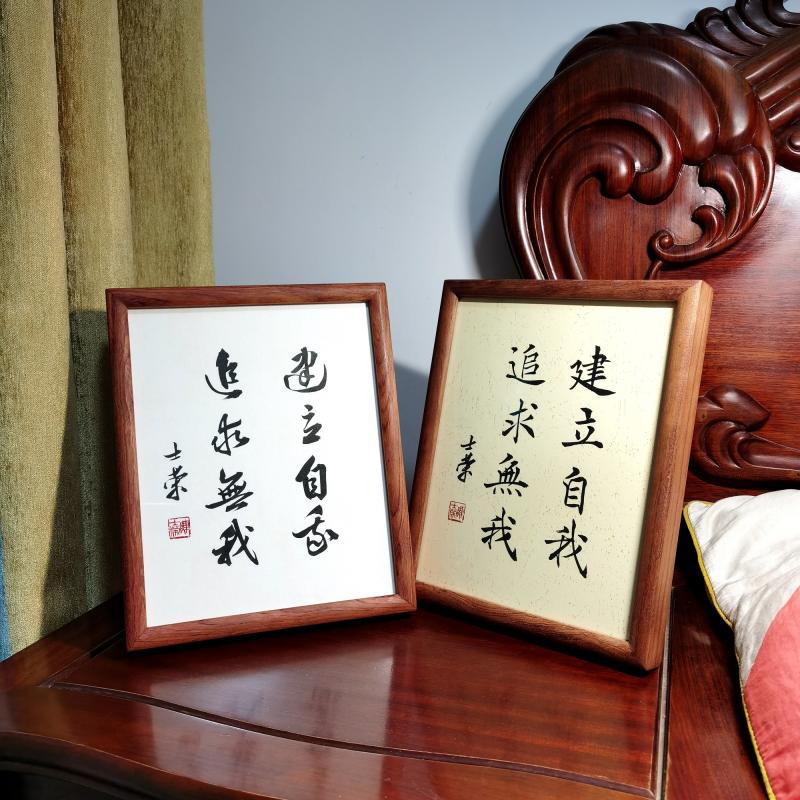 建立自我
追求無我
士榮
建立自我
追求無我
士榮